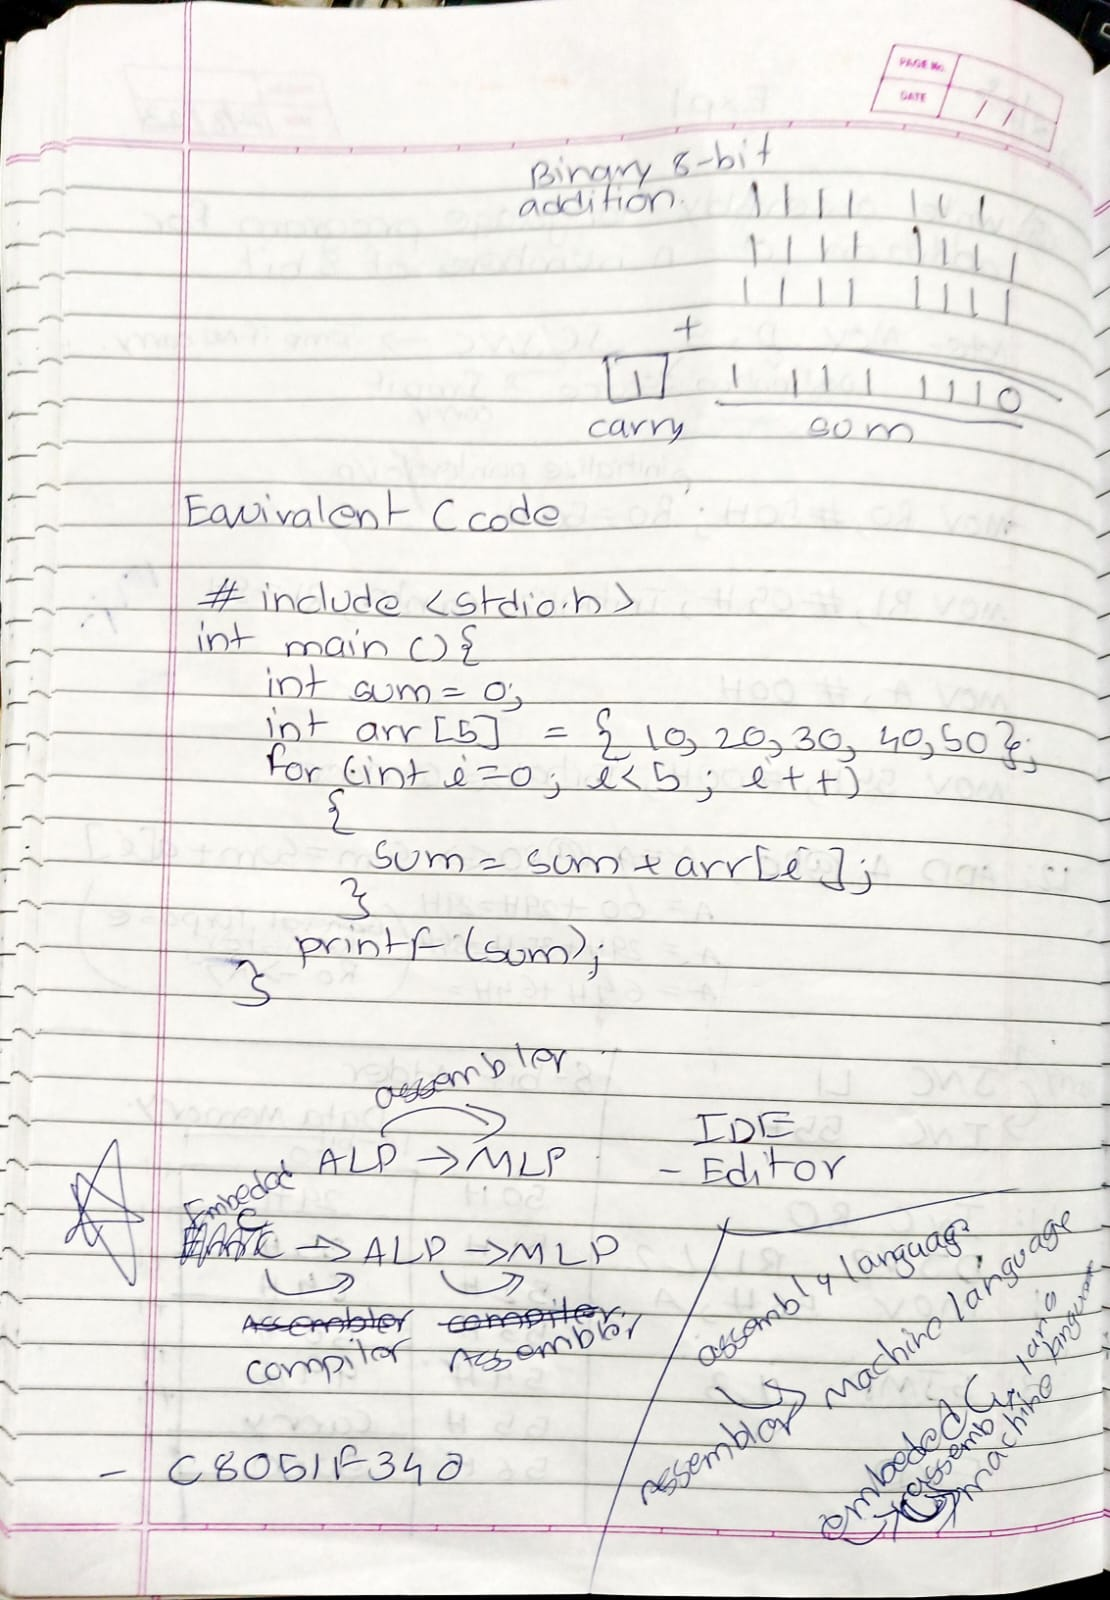 PAGE No.
DATE / /
Binary 8-bit
addition.
1111 111
1111 1111
1111 1111
+
1 1111 1110
carry sum
Equivalent C code
# include <stdio.h>
int main () {
int sum = 0;
int arr [5] = { 10, 20, 30, 40, 50 };
for (int i = 0; i < 5; i++)
{
sum = sum + arr[i];
}
printf (sum);
}
assemblor
ALP → MLP
IDE
- Editor
Embeded
C → ALP → MLP
Assembler compiler
compilor Assemblor
- C8051F340
assembly language
Machine language
Assemblor
embeded C
assembly lang
machine language